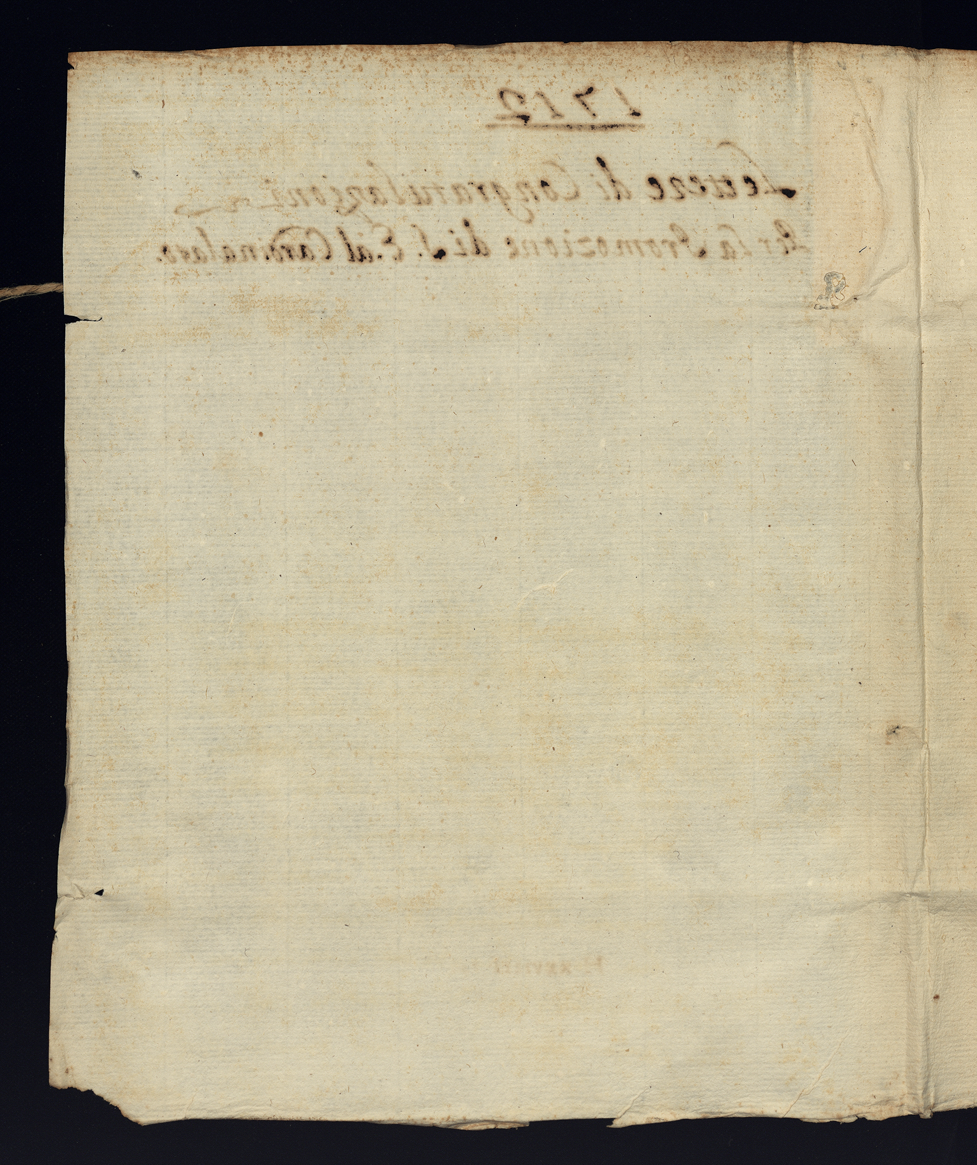 1712
Lettere di Congratulazione
Per la Promozione di S. E. al Cardinalato.